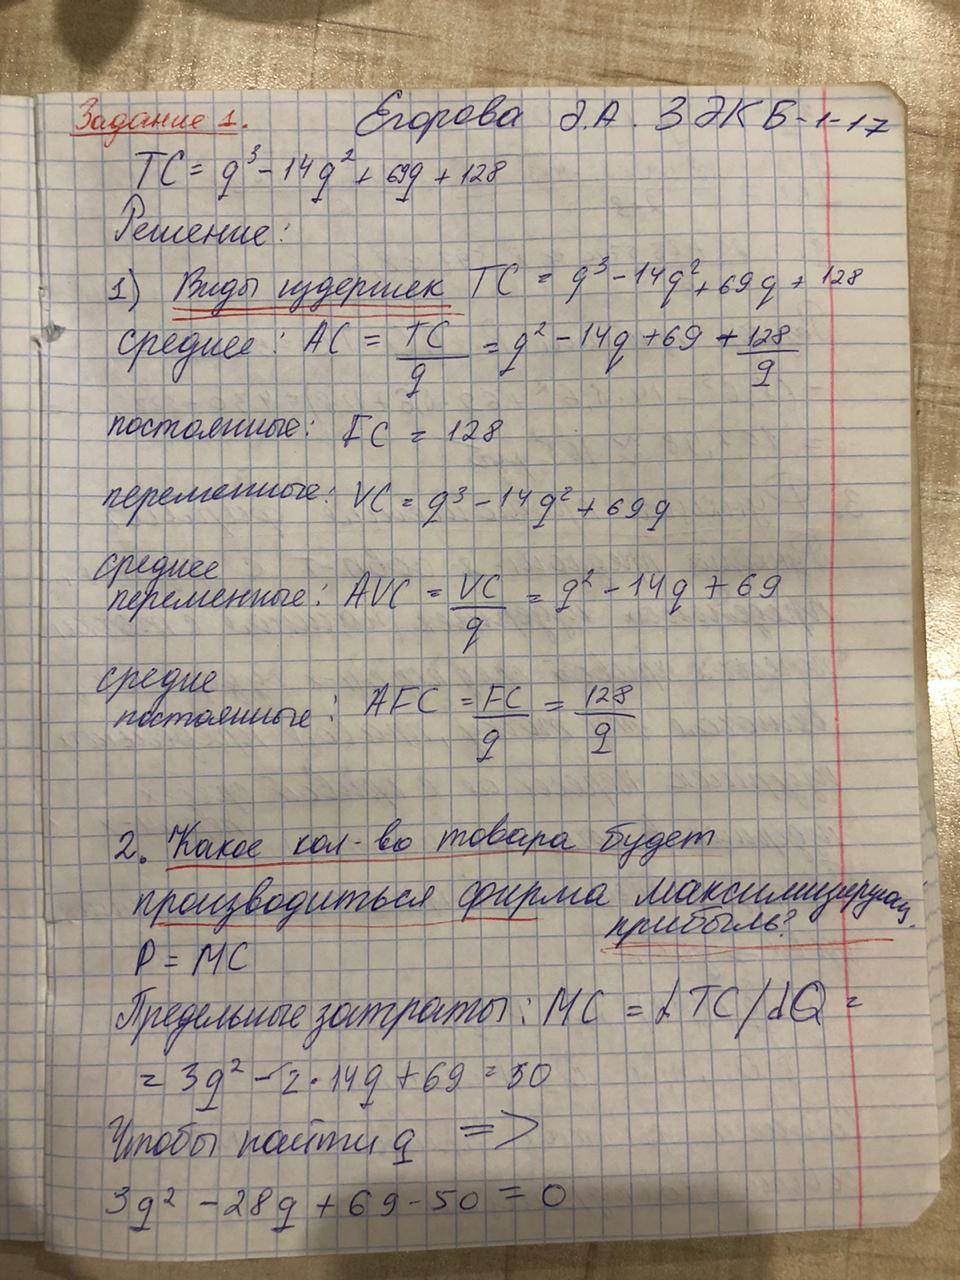 Задание 1. Егорова Э.А. ЗЭКБ-1-17
TC = q³ - 14q² + 69q + 128
Решение:
1) Виды издержек TC = q³ - 14q² + 69q + 128
среднее: AC = TC/q = q² - 14q + 69 + 128/q
постоянные: FC = 128
переменные: VC = q³ - 14q² + 69q
среднее
переменные: AVC = VC/q = q² - 14q + 69
средние
постоянные: AFC = FC/q = 128/q
2. Какое кол-во товара будет
производиться фирма максимизирующ.
прибыль?
P = MC
Предельные затраты: MC = dTC/dQ =
= 3q² - 2·14q + 69 = 50
Чтобы найти q =>
3q² - 28q + 69 - 50 = 0